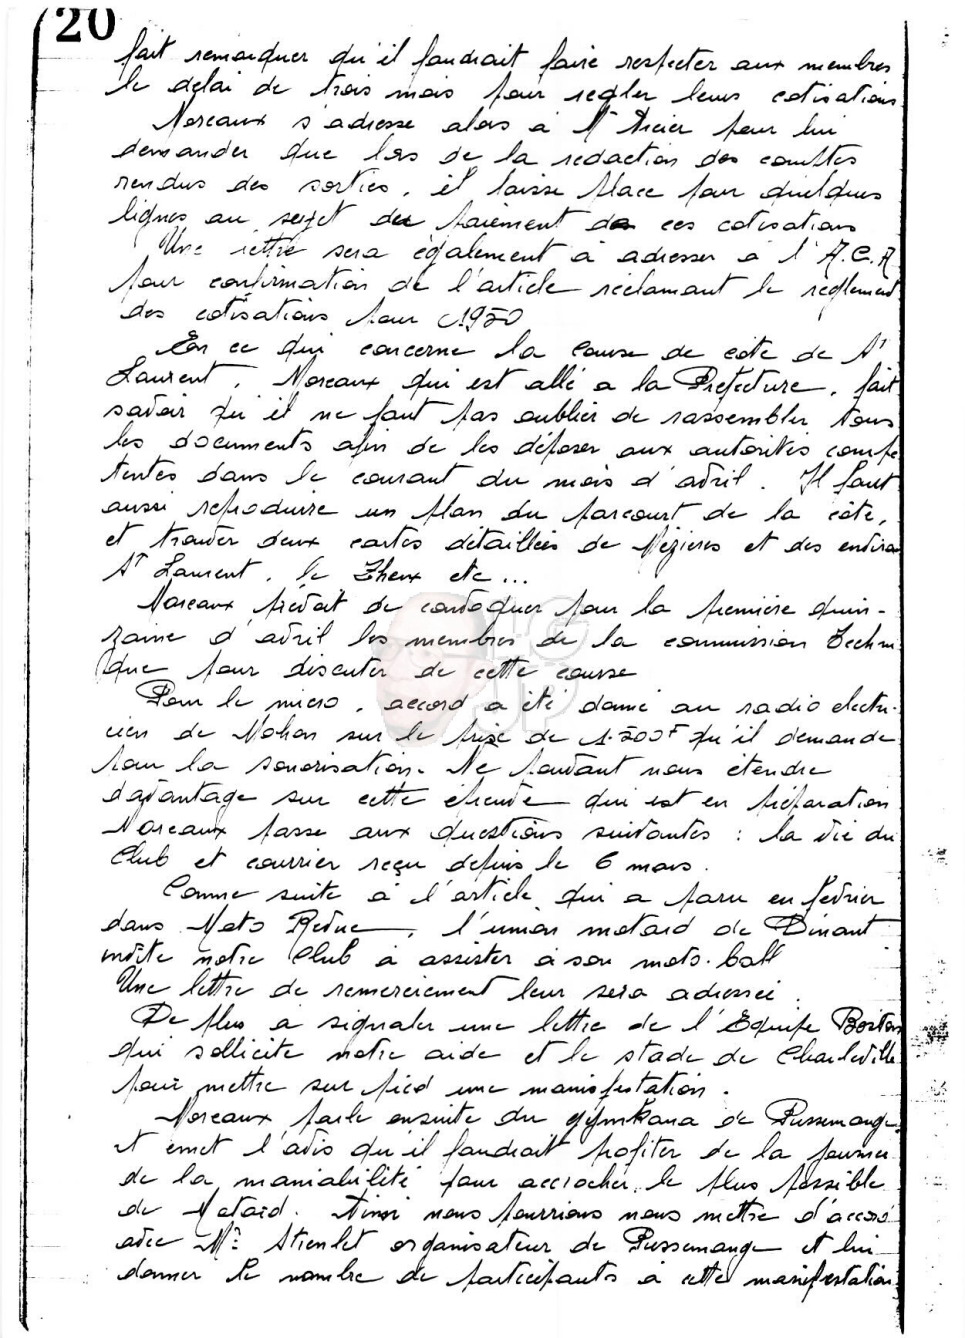 20
fait remarquer qu'il faudrait faire respecter aux membres
le délai de trois mois pour regler leurs cotisations
Noreaux s'adresse alors à Mr pour lui
demander que lors de la redaction des comptes
rendus des sorties, il laisse place pour quelques
lignes au sujet du paiement de ces cotisations
Une lettre sera également à adresser à l'A.C.A
pour confirmation de l'article réclamant le reglement
des cotisations pour 1950
En ce qui concerne la Course de cote de St
Laurent, Noreaux qui est allé a la Prefecture, fait
savoir qu'il ne faut pas oublier de rassembler tous
les documents afin de les déposer aux autorités compé
tentes dans le courant du mois d'avril. Il faut
aussi reproduire un plan du parcourt de la côte,
et trouver deux cartes détaillées de Mézieres et des environ
St Laurent, le Theux etc...
Noreaux prévoit de convoquer pour la première quin-
zaine d'avril les membres de la commission Techni
que pour discuter de cette course
HG
JP
Pour le micro, accord a été donné au radio electri-
cien de Mohon sur le prix de 1.500F qu'il demande
pour la sonorisation. Ne pouvant nous étendre
davantage sur cette épreuve qui est en préparation
Noreaux passe aux questions suivantes : la vie du
Club et courrier reçu depuis le 6 mars.
Comme suite à l'article qui a paru en février
dans Moto Revue, l'union motard de Dinant
invite notre Club à assister à son moto-ball
Une lettre de remerciement leur sera adressée.
De plus à signaler une lettre de l'Equipe Boston
qui sollicite notre aide et le stade de Charleville
pour mettre sur pied une manifestation.
Noreaux parle ensuite du gymkana de Pussemange
et émet l'avis qu'il faudrait profiter de la journée
de la maniabilité pour accrocher le plus possible
de Motard. Ainsi nous pourrions nous mettre d'accord
avec Mr Stienlet organisateur de Pussemange et lui
donner le nombre de participants à cette manifestation